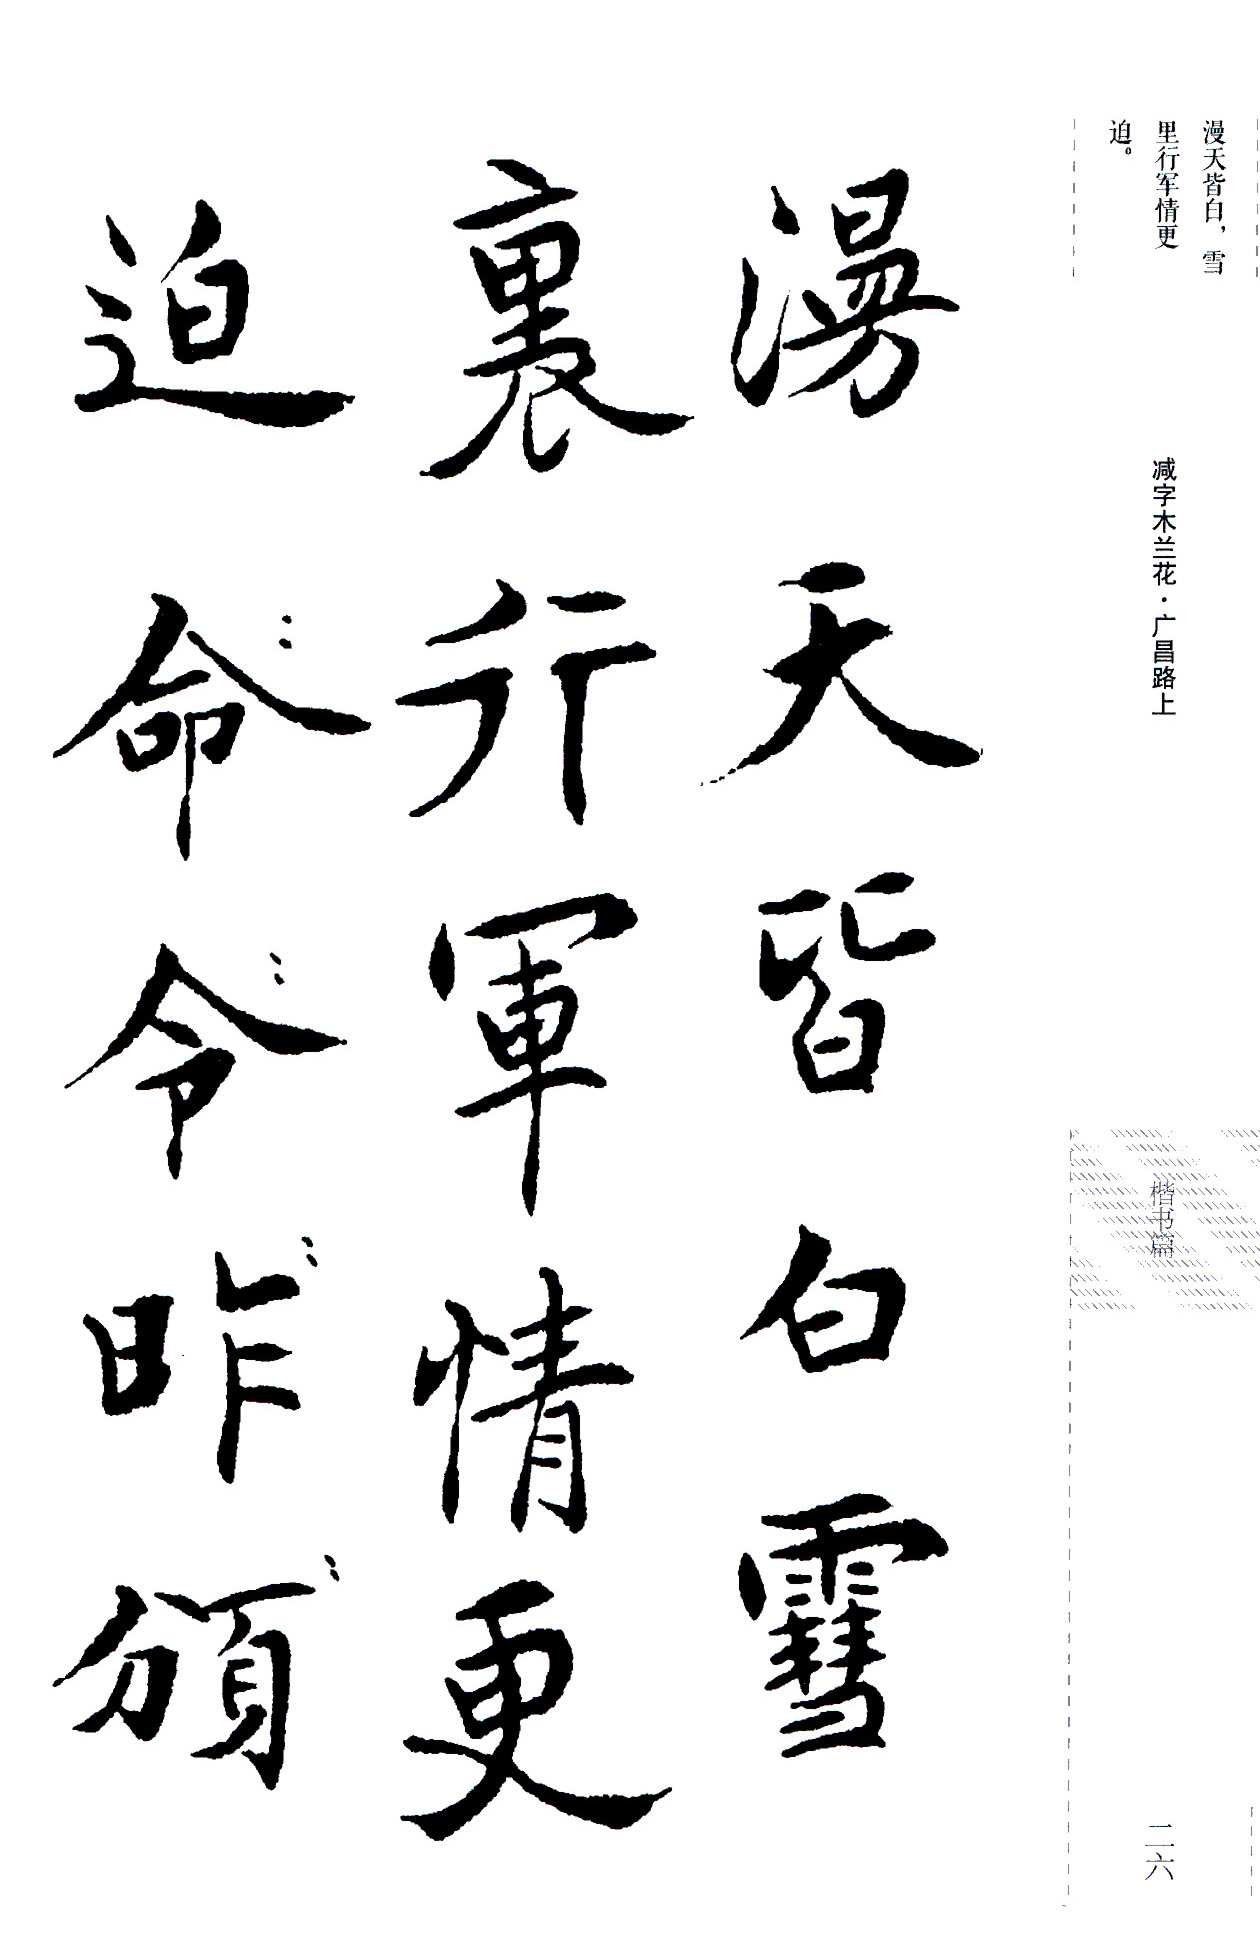 漫天皆白，雪
里行军情更
迫。
减字木兰花·广昌路上
楷书篇
二六
漫天皆白雪
裏行軍情更
迫命令昨頒